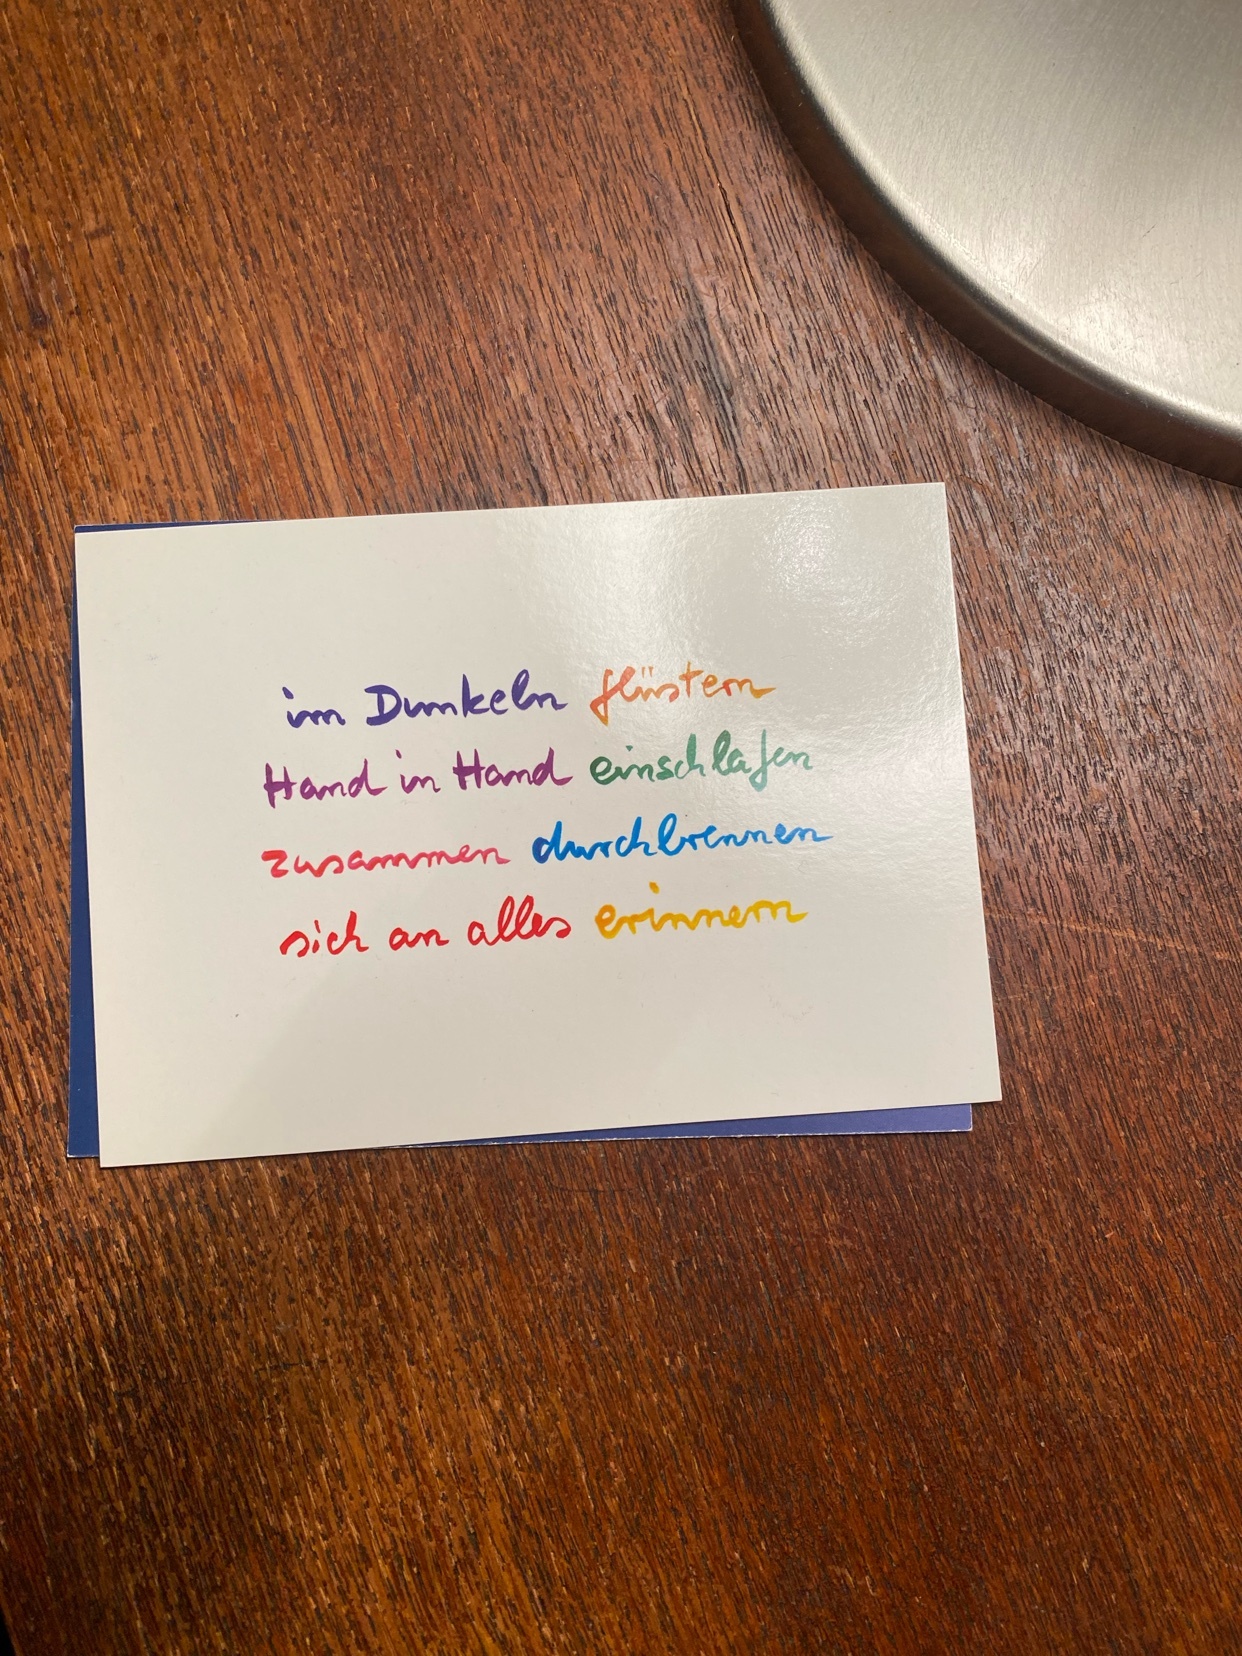 im Dunkeln flüstern
Hand in Hand einschlafen
zusammen durchbrennen
sich an alles erinnern